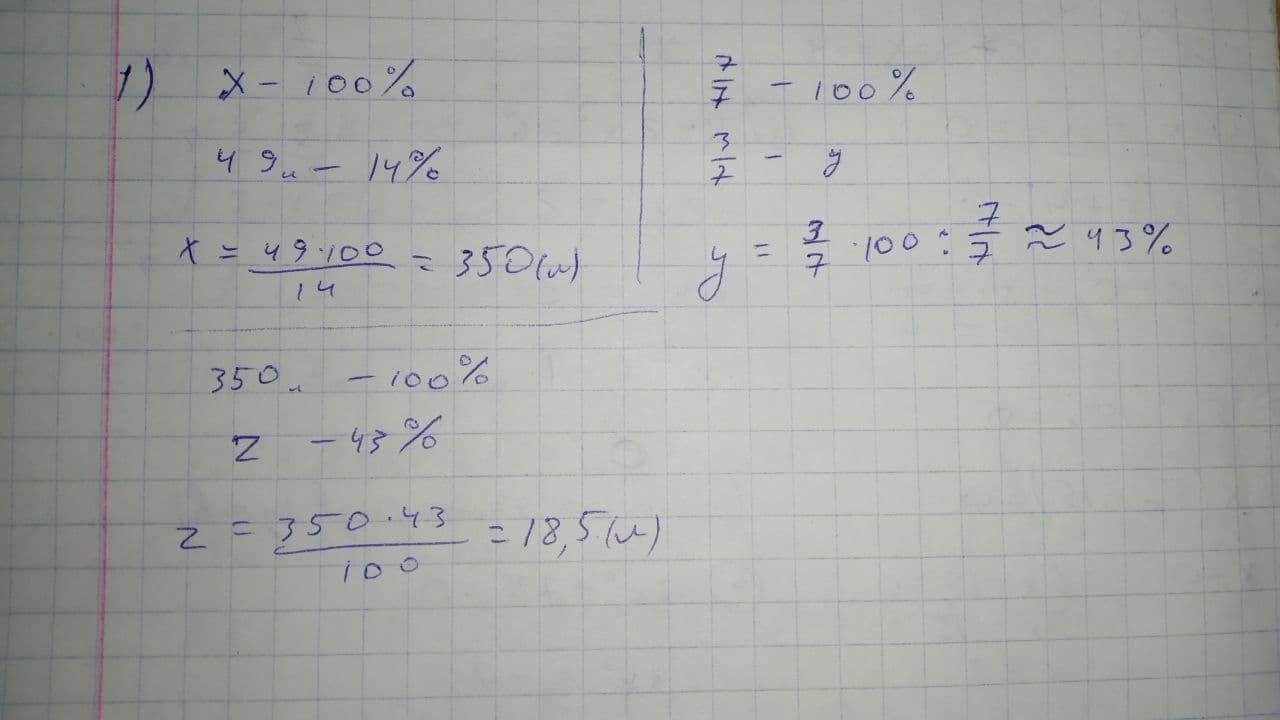 1) x - 100%
49л - 14%
x = 49·100/14 = 350(л)
7/7 - 100%
3/7 - y
y = 3/7 ·100 : 7/7 ≈ 43%
350л - 100%
z - 43%
z = 350·43/100 = 18,5(л)